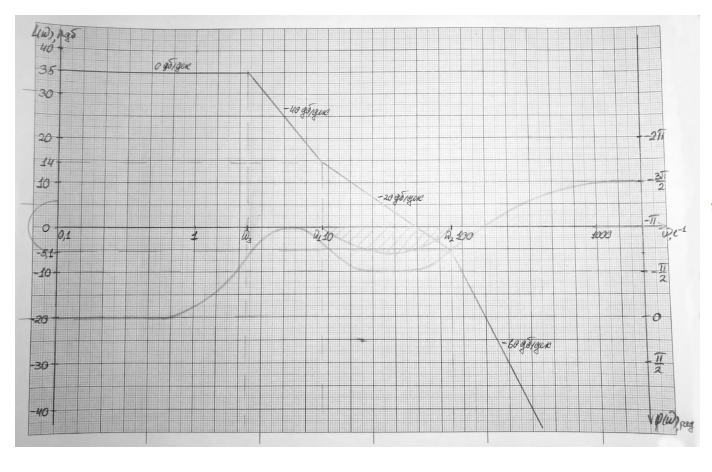 L(ω), дБ
40
35
20
14
10
0
-5,1
-10
-20
-30
-40
0 дБ/дек
-40 дБ/дек
-20 дБ/дек
-60 дБ/дек
0,1
1
ω₃
ω₁ 10
ω₂ 100
1000
ω, с⁻¹
-2π
-3π/2
-π
-π/2
0
π/2
φ(ω), рад